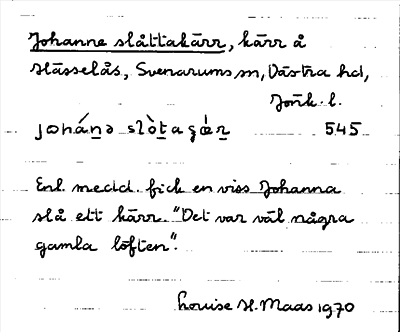 Johanne slåttakärr, kärr å
Hässelås, Svenarums sn, Västra hd,
Jönk. l.
545
Enl. medd. fick en viss Johanna
slå ett kärr. "Det var väl några
gamla löften".
Louise H. Maas 1970